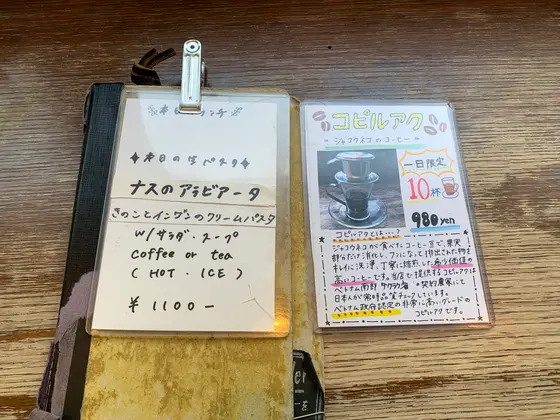 本日のランチ
✦本日の生パスタ✦
ナスのアラビアータ
きのことインゲンのクリームパスタ
W/サラダ・スープ
coffee or tea
(HOT・ICE)
¥1100-
コピルアク
ジャコウネコのコーヒー
一日限定
10杯
980yen
コピルアクとは…?
ジャコウネコが食べたコーヒー豆で、果実
部分だけ消化し、フンになって排出された物を
キレイに洗浄、丁寧に焙煎した希少価値の
高いコーヒーです。当店で提供するコピルアクは
ベトナム南部
契約農家にて
日本人が常時品質チェックしています。
ベトナム政府認定の非常に高いグレードの
コピルアクです。